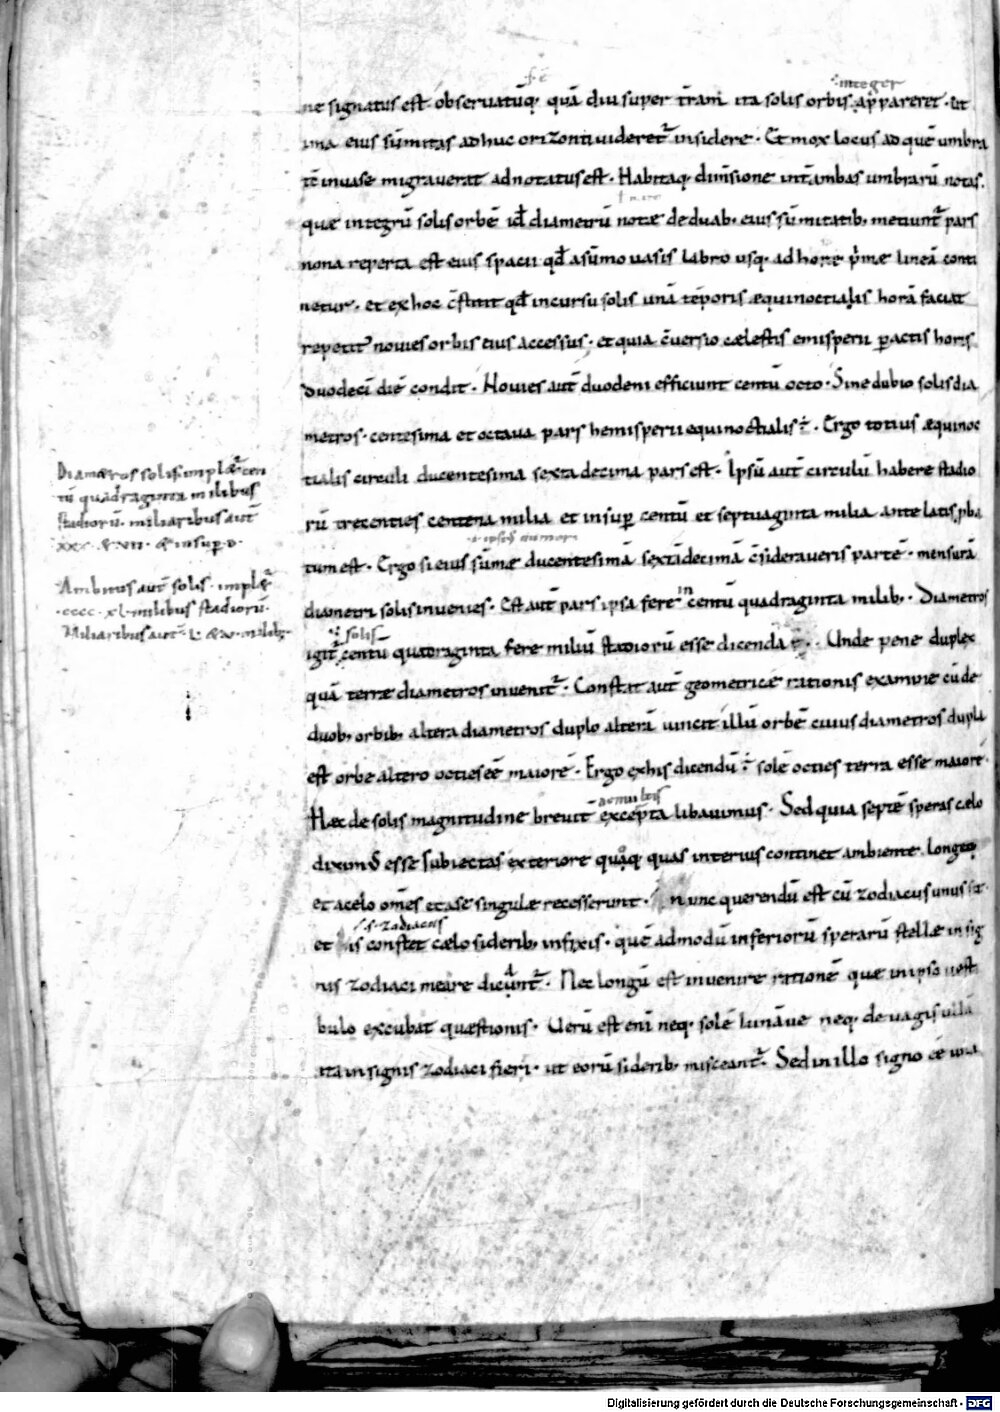 integer
ne signatus est. observatūq; quā diu super t̄ram ita solis orbis appareret. ut
ima eius sūmitas adhuc orizonti videret᷑ insidere. Et mox locus ad quē umbra
tē invase migraverat adnotatus est. Habitaq; dim̄sione int̄ ambas umbrarū notas.
quæ integrū solis orbē id ē diametrū notæ de duab; eius sūmitatib; metiunt᷑ pars
nona reperta est eius spacii qđ asūmo vasis labro usq; ad horæ p̄mæ lineā conti
netur. et ex hoc c̄stitit qđ in cursu solis unā tēporis æquinoctialis horā faciat
repetit᷑ novies orbis eius accessus. et quia c̄versio cælestis emisperii ꝑactis horis
duodecī diē condit. Novies aut̄ duodeni efficiunt centū octo. Sine dubio solis dia
metros. centesima et octava pars hemisperii equinoctialis ÷. Ergo totius æquinoc
tialis circuli ducentesima sexta decima pars est. Ipsū aut̄ circulū habere stadio
rū trecenties centena milia et insuꝑ centū et septuaginta milia ante latis p̱ba
tum est. Ergo si eius sūmæ ducentesimā sextādecimā c̄sideraveris partē. mensurā
diametri solis invenies. Est aut̄ pars ipsa fere in centū quadraginta milib;. Diametros
solis
igit᷑ centū quadraginta fere miliū stadiorū esse dicenda ÷. Unde pene duplex
quā terræ diametros invenit᷑. Constat aut̄ geometricæ rationis examine cū de
duob; orbib; altera diametros duplo alterā vincit illū orbē cuius diametros dupla
est orbe altero octies eē maiorē. Ergo ex his dicendū ÷ solē octies terra esse maiorē.
a multis
Hæc de solis magnitudine brevit̄ excepta libavimus. Sed quia septē speras cælo
dixim᷒ esse subiectas exteriore quāq; quas interius continet ambiente. longeq;
et a celo om̄es et a se singulæ recesserunt. nunc querendū est cū zodiacus unus sit.
.s. zodiacus
et is constet cælo siderib; infixis. quē admodū inferiorū sperarū stellæ in sig
nis zodiaci meare dicant᷑. Nec longū est invenire rationē quæ in ipso vesti
bulo excubat quæstionis. Verū est enī neq; solē lunāve neq; de vagis ullā
ita in signis zodiaci fieri. ut eorū siderib; misceant᷑. Sed in illo signo eē
Diametros solis implet᷑ cen
tū quadraginta milibus
stadiorū. miliaribus aut̄
xvii. & insuꝑ d.
Ambitus aut̄ solis. implet᷑
.cccc. xl. milibus stadiorū.
Miliaribus aut̄. L. & v. milib;
Digitalisierung gefördert durch die Deutsche Forschungsgemeinschaft - DFG